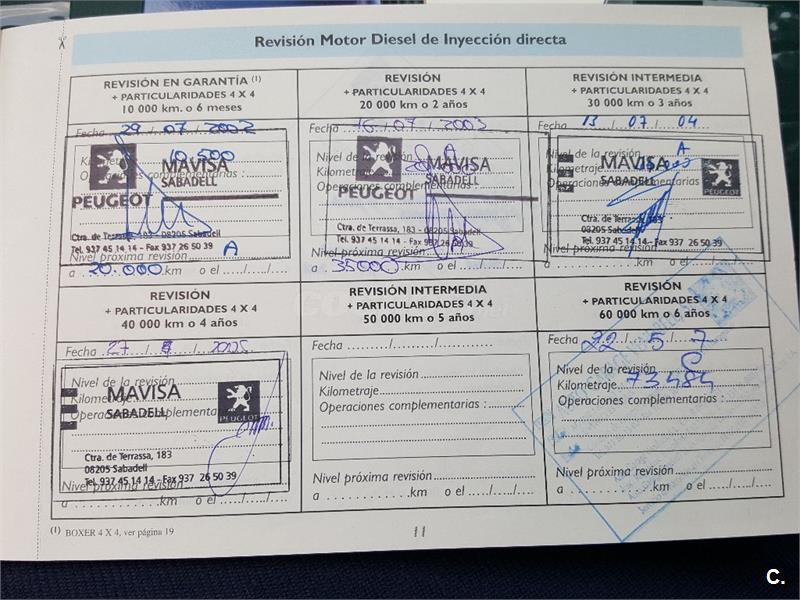 Revisión Motor Diesel de Inyección directa
REVISIÓN EN GARANTÍA (1)
+ PARTICULARIDADES 4 X 4
10 000 km. o 6 meses
Fecha 29 / 07 / 2002
Kilometraje 10.500
Operaciones complementarias :
MAVISA
SABADELL
PEUGEOT
Ctra. de Terrassa, 183 - 08205 Sabadell
Tel. 937 45 14 14 - Fax 937 26 50 39
Nivel próxima revisión A
a 20.000 km o el ...../...../.....
REVISIÓN
+ PARTICULARIDADES 4 X 4
20 000 km o 2 años
Fecha 16 / 07 / 2003
Nivel de la revisión A
Kilometraje
Operaciones complementarias
MAVISA
SABADELL
PEUGEOT
Ctra. de Terrassa, 183 - 08205 Sabadell
Tel. 937 45 14 14 - Fax 937 26 50 39
Nivel próxima revisión
a 35000 km o el ...../...../.....
REVISIÓN INTERMEDIA
+ PARTICULARIDADES 4 X 4
30 000 km o 3 años
Fecha 13 / 07 / 04
Nivel de la revisión A
Kilometraje
Operaciones complementarias
MAVISA
SABADELL
PEUGEOT
Ctra. de Terrassa, 183
08205 Sabadell
Tel. 937 45 14 14 - Fax 937 26 50 39
Nivel próxima revisión
a ............km o el ...../...../.....
REVISIÓN
+ PARTICULARIDADES 4 X 4
40 000 km o 4 años
Fecha 27 / / 2005
Nivel de la revisión
Kilometraje
Operaciones complementarias
MAVISA
SABADELL
PEUGEOT
Ctra. de Terrassa, 183
08205 Sabadell
Tel. 937 45 14 14 - Fax 937 26 50 39
Nivel próxima revisión
a ............km o el ...../...../.....
REVISIÓN INTERMEDIA
+ PARTICULARIDADES 4 X 4
50 000 km o 5 años
Fecha ............/............/............
Nivel de la revisión
Kilometraje
Operaciones complementarias :
Nivel próxima revisión
a ............km o el ...../...../.....
REVISIÓN
+ PARTICULARIDADES 4 X 4
60 000 km o 6 años
Fecha 22 / 5 / 7
Nivel de la revisión C
Kilometraje 73484
Operaciones complementarias :
Nivel próxima revisión
a ............km o el ...../...../.....
(1) BOXER 4 X 4, ver página 19
11
C.